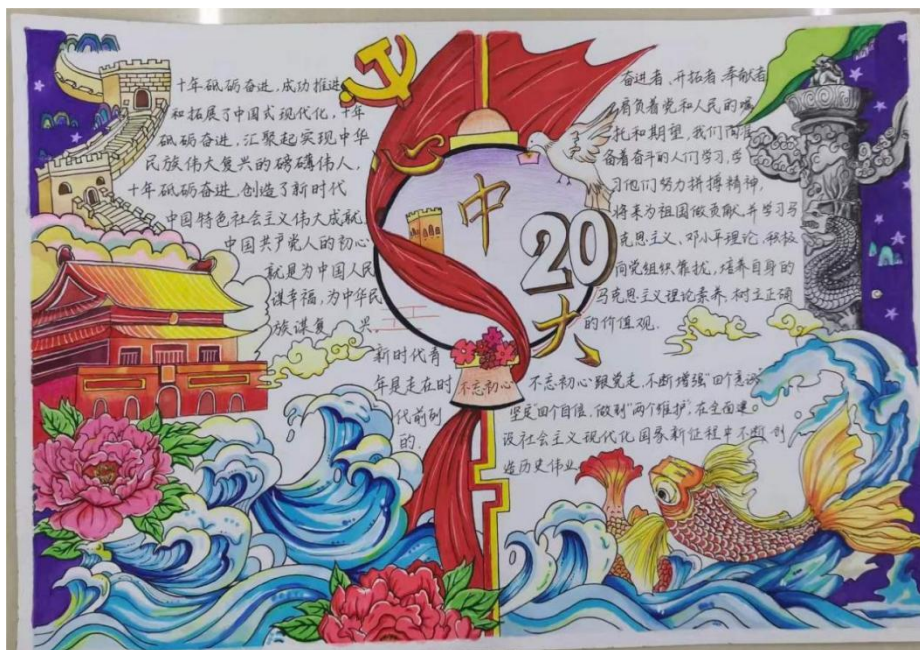 十年砥砺奋进,成功推进
和拓展了中国式现代化,十年
砥砺奋进,汇聚起实现中华
民族伟大复兴的磅礴伟人,
十年砥砺奋进,创造了新时代
中国特色社会主义伟大成就,
中国共产党人的初心
就是为中国人民
谋幸福,为中华民
族谋复兴.
中
20
大
奋进者、开拓者、奉献者
肩负着党和人民的嘱
托和期望,我们向
着奋斗的人们学习,学
习他们努力拼搏精神,
将来为祖国做贡献,并学习马
克思主义、邓小平理论,积极
向党组织靠拢,培养自身的
马克思主义理论素养,树立正确
的价值观.
新时代青
年是走在时
代前列
的.
不忘初心
不忘初心跟党走,不断增强"四个意识"
坚定"四个自信,做到"两个维护",在全面建
设社会主义现代化国家新征程中不断创
造历史伟业.